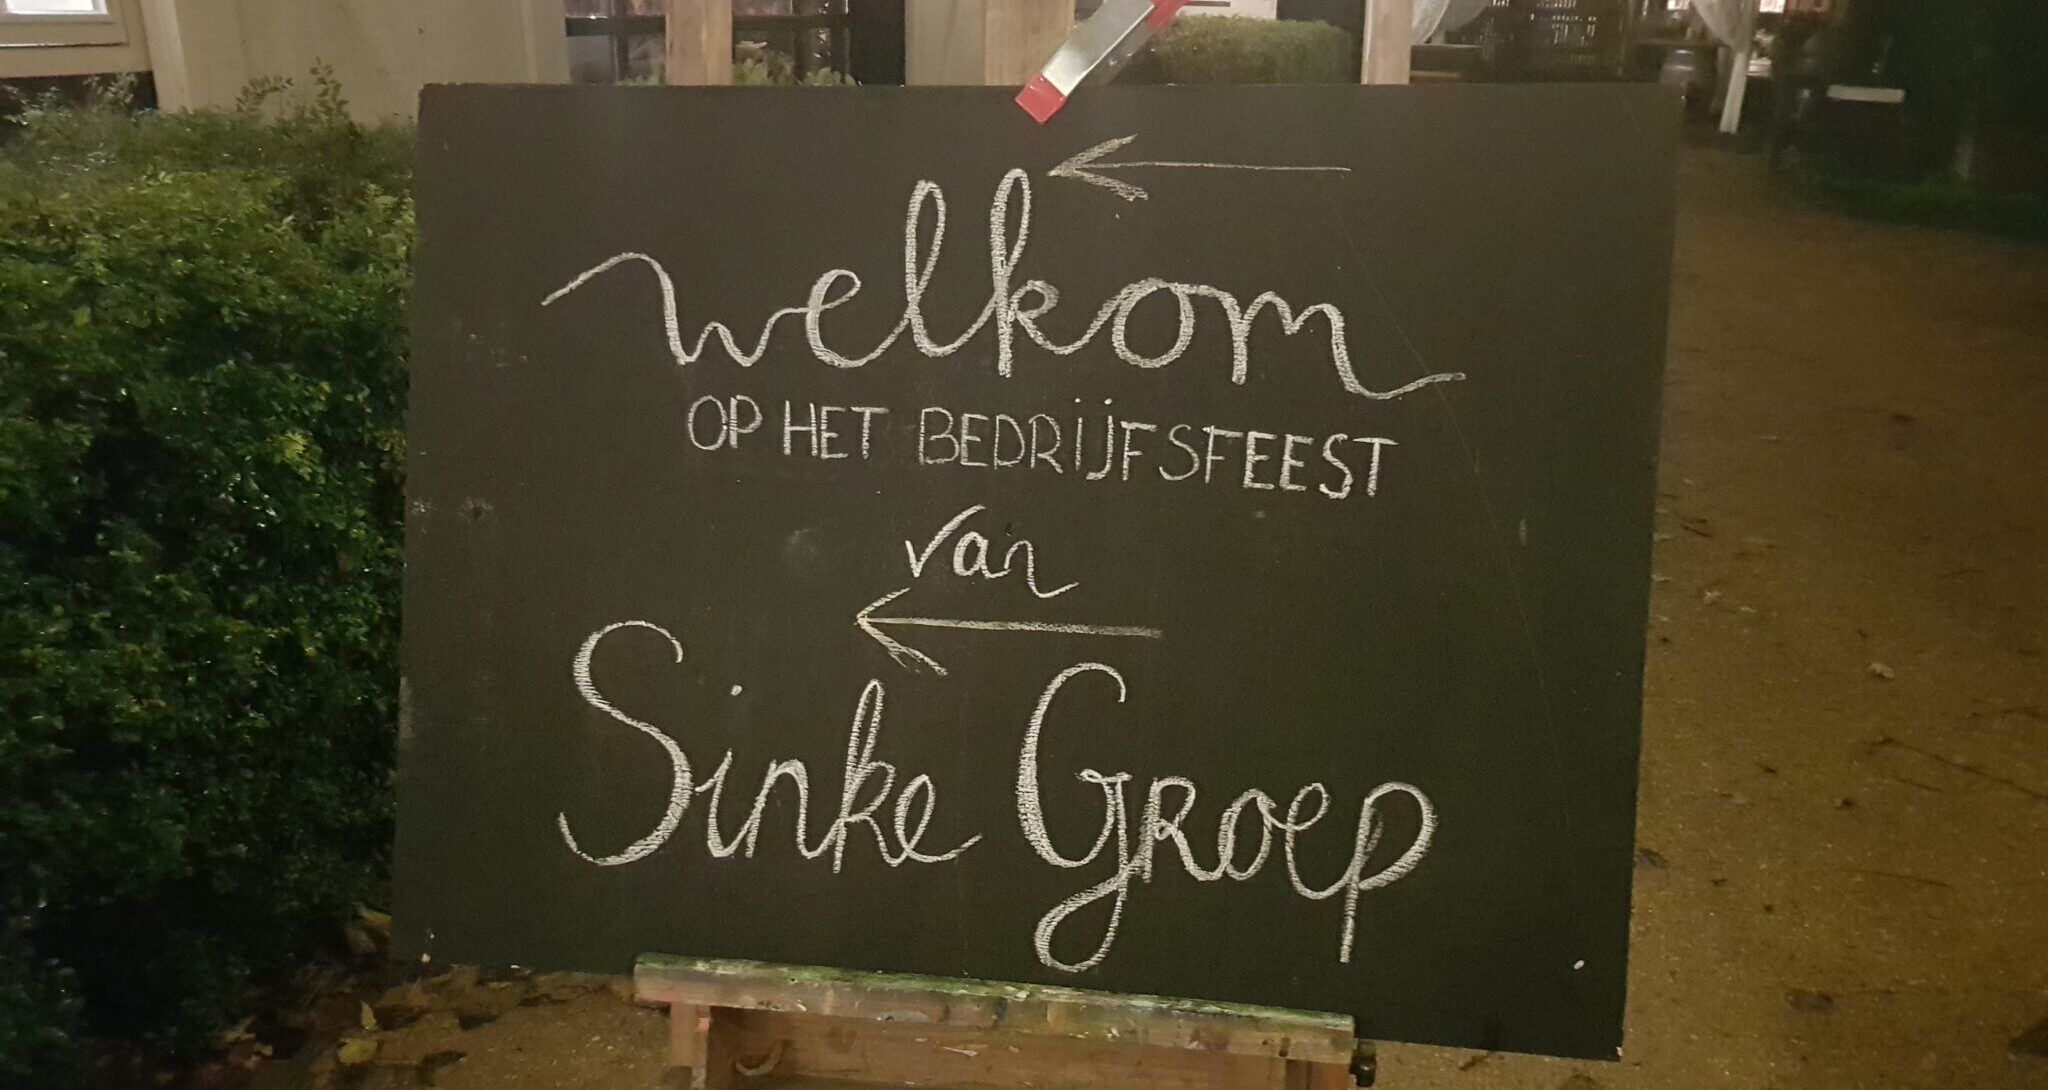 welkom
OP HET BEDRIJFSFEEST
van
Sinke Groep